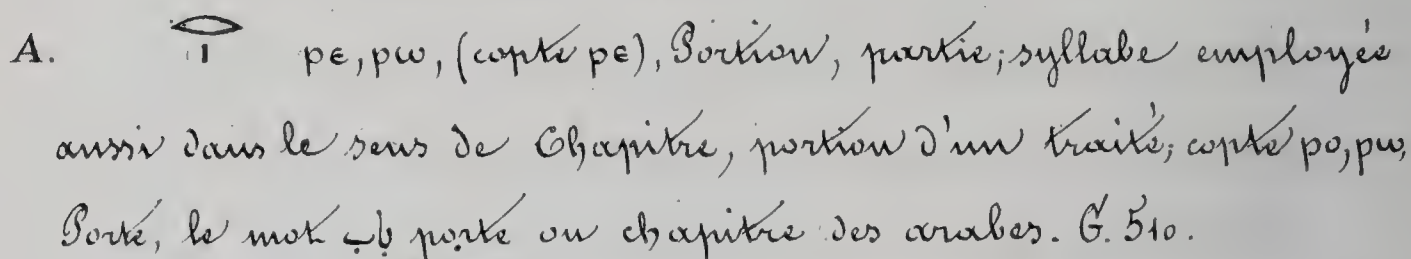 A. 𓂋𓏤 ⲣⲉ, ⲣⲱ, (copte ⲣⲉ), Portion, partie; syllabe employée
aussi dans le sens de Chapitre, portion d'un traité; copte ⲣⲟ, ⲣⲱ,
Porte, le mot باب porte ou chapitre des arabes. G. 510.